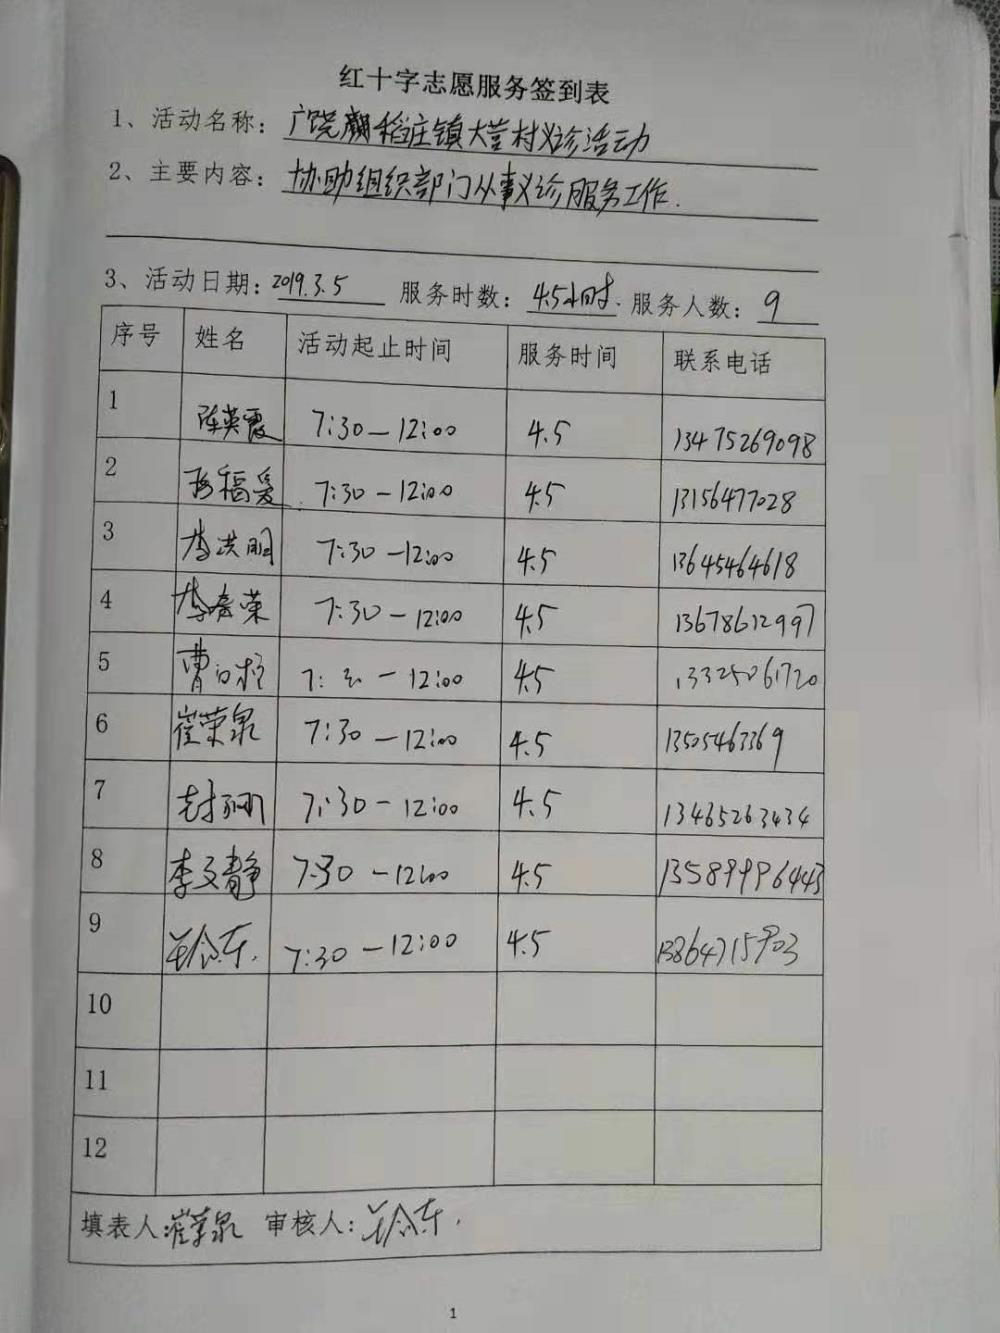 红十字志愿服务签到表
1、活动名称：广饶稻庄镇大营村义诊活动
2、主要内容：协助组织部门从事义诊服务工作.
3、活动日期：2019.3.5 服务时数：4.5小时. 服务人数：9
序号 姓名 活动起止时间 服务时间 联系电话
1 陈英霞 7:30—12:00 4.5 13475269098
2 7:30—12:00 4.5 13156477028
3 李洪明 7:30—12:00 4.5 13645464618
4 李春荣 7:30—12:00 4.5 13678612997
5 曹 7:30—12:00 4.5 13325061720
6 崔荣泉 7:30—12:00 4.5 13505463369
7 7:30—12:00 4.5 13465263434
8 李文静 7:30—12:00 4.5 13589996443
9 7:30—12:00 4.5 13864715903
10
11
12
填表人:崔荣泉 审核人:
1